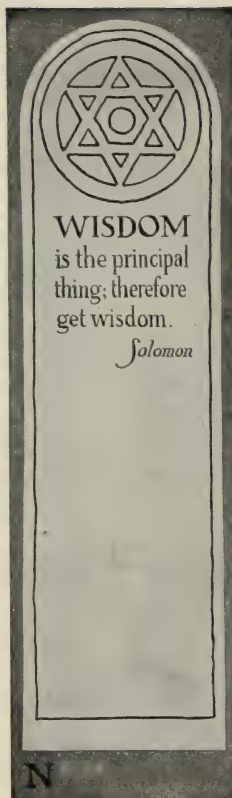 WISDOM
is the principal
thing; therefore
get wisdom.
Solomon
N